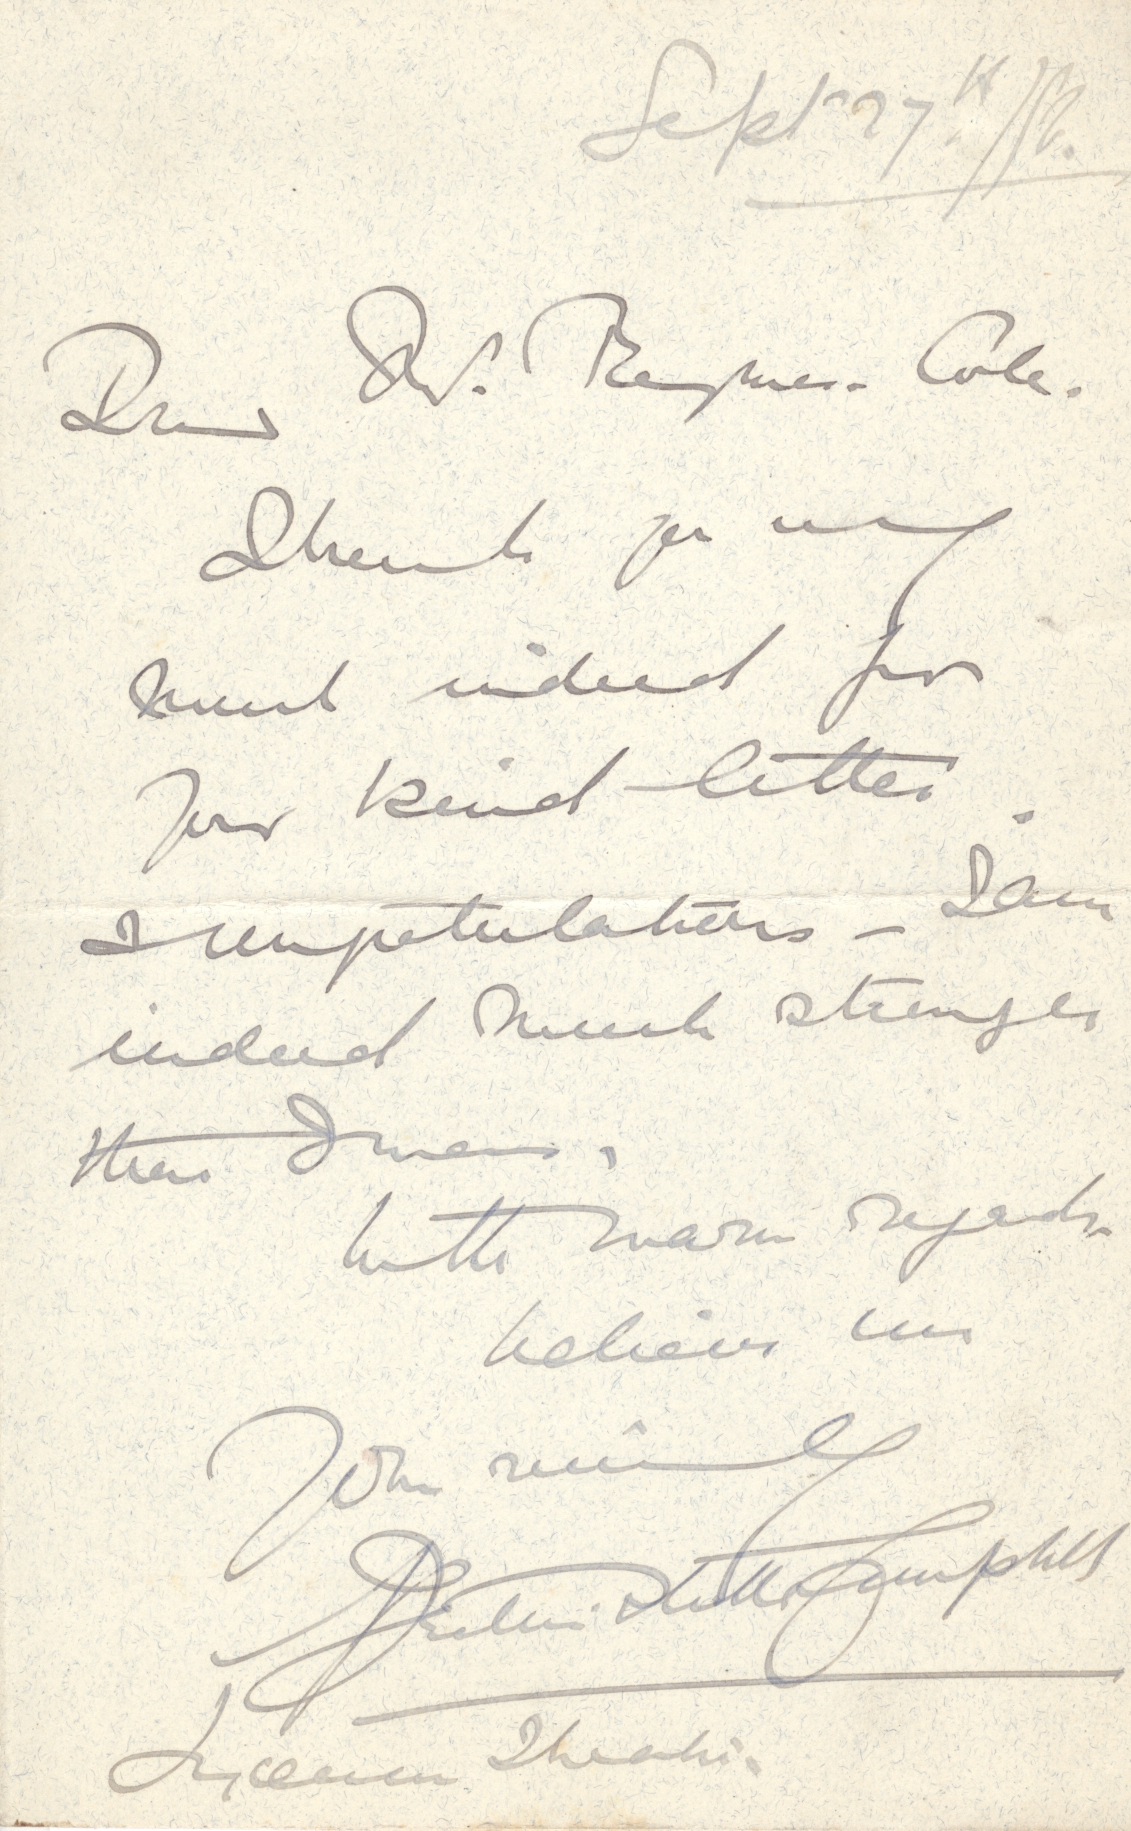 Sept 27th/
Dear Mr. Cole.
Thank you very
much indeed for
your kind letter.
& congratulations – I am
indeed much stronger
than I was.
With warm regards.
believe me
Yours sincerely
Beatrice Stella Campbell
Lyceum Theatre.